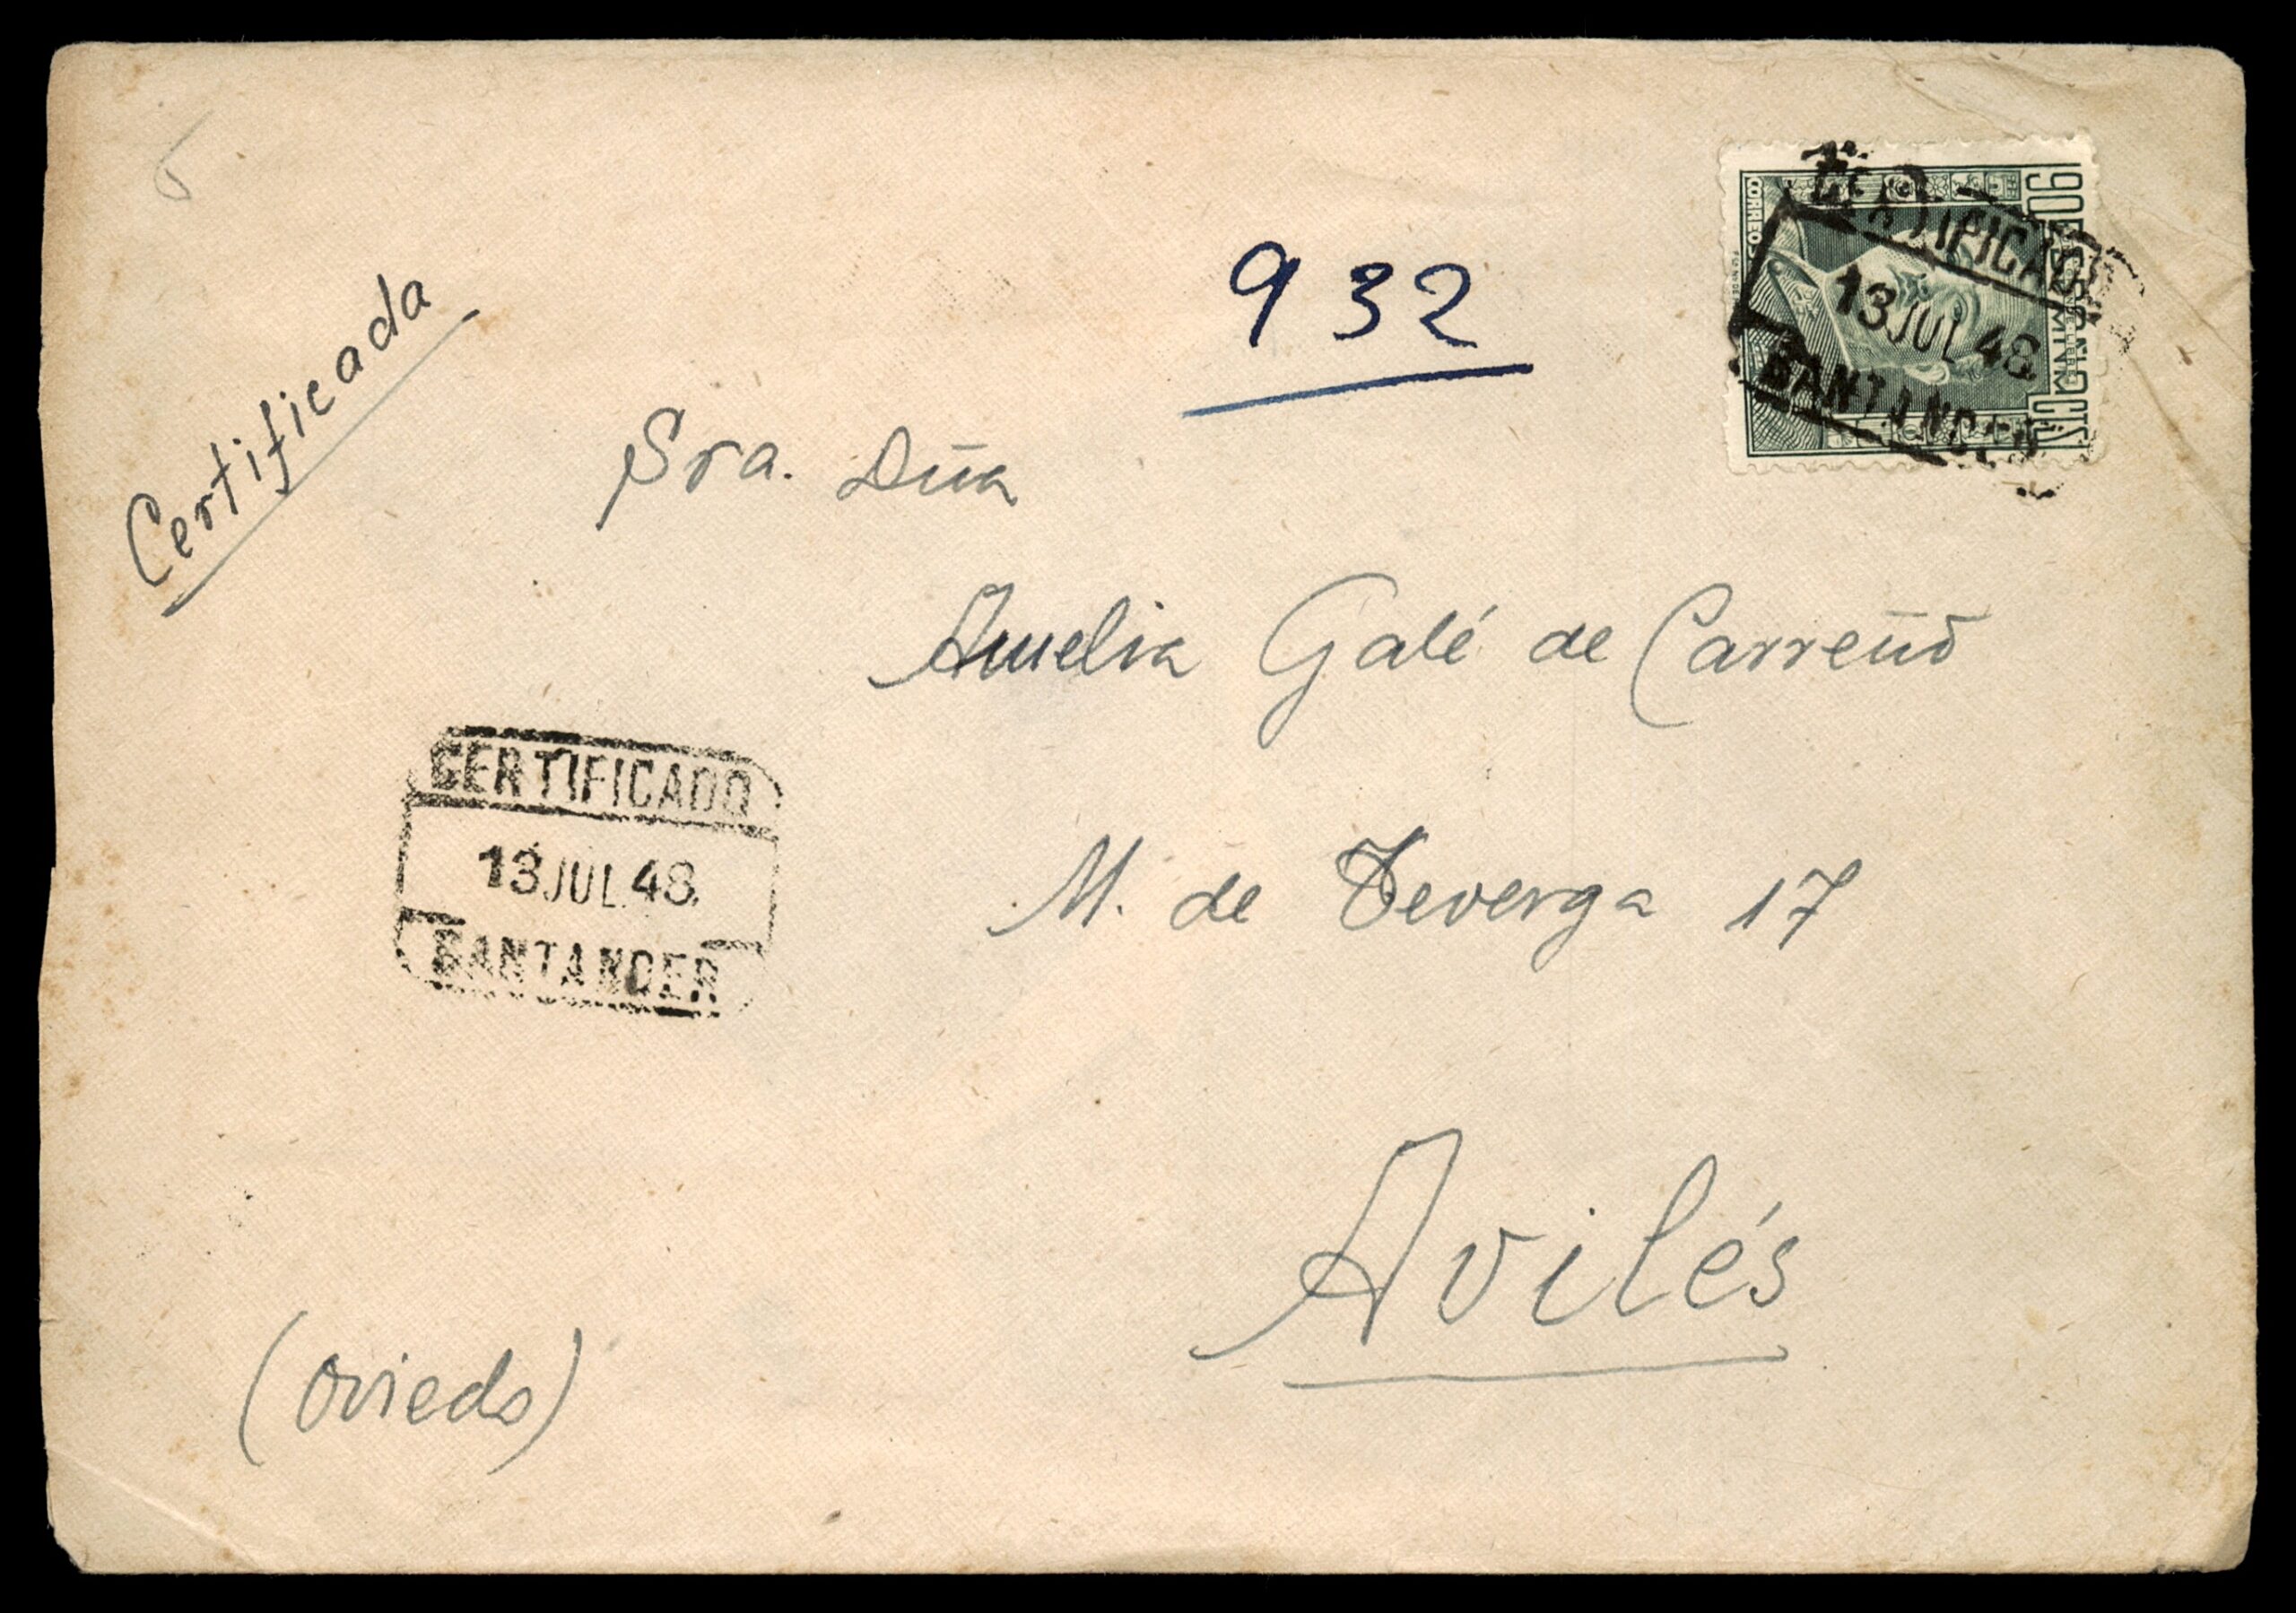 Certificada
932
CORREOS
90 CTS
CERTIFICADO
13 JUL 48
SANTANDER
Sra. Dña
Amelia Galé de Carreño
M. de Teverga 17
CERTIFICADO
13 JUL 48
SANTANDER
Avilés
(Oviedo)